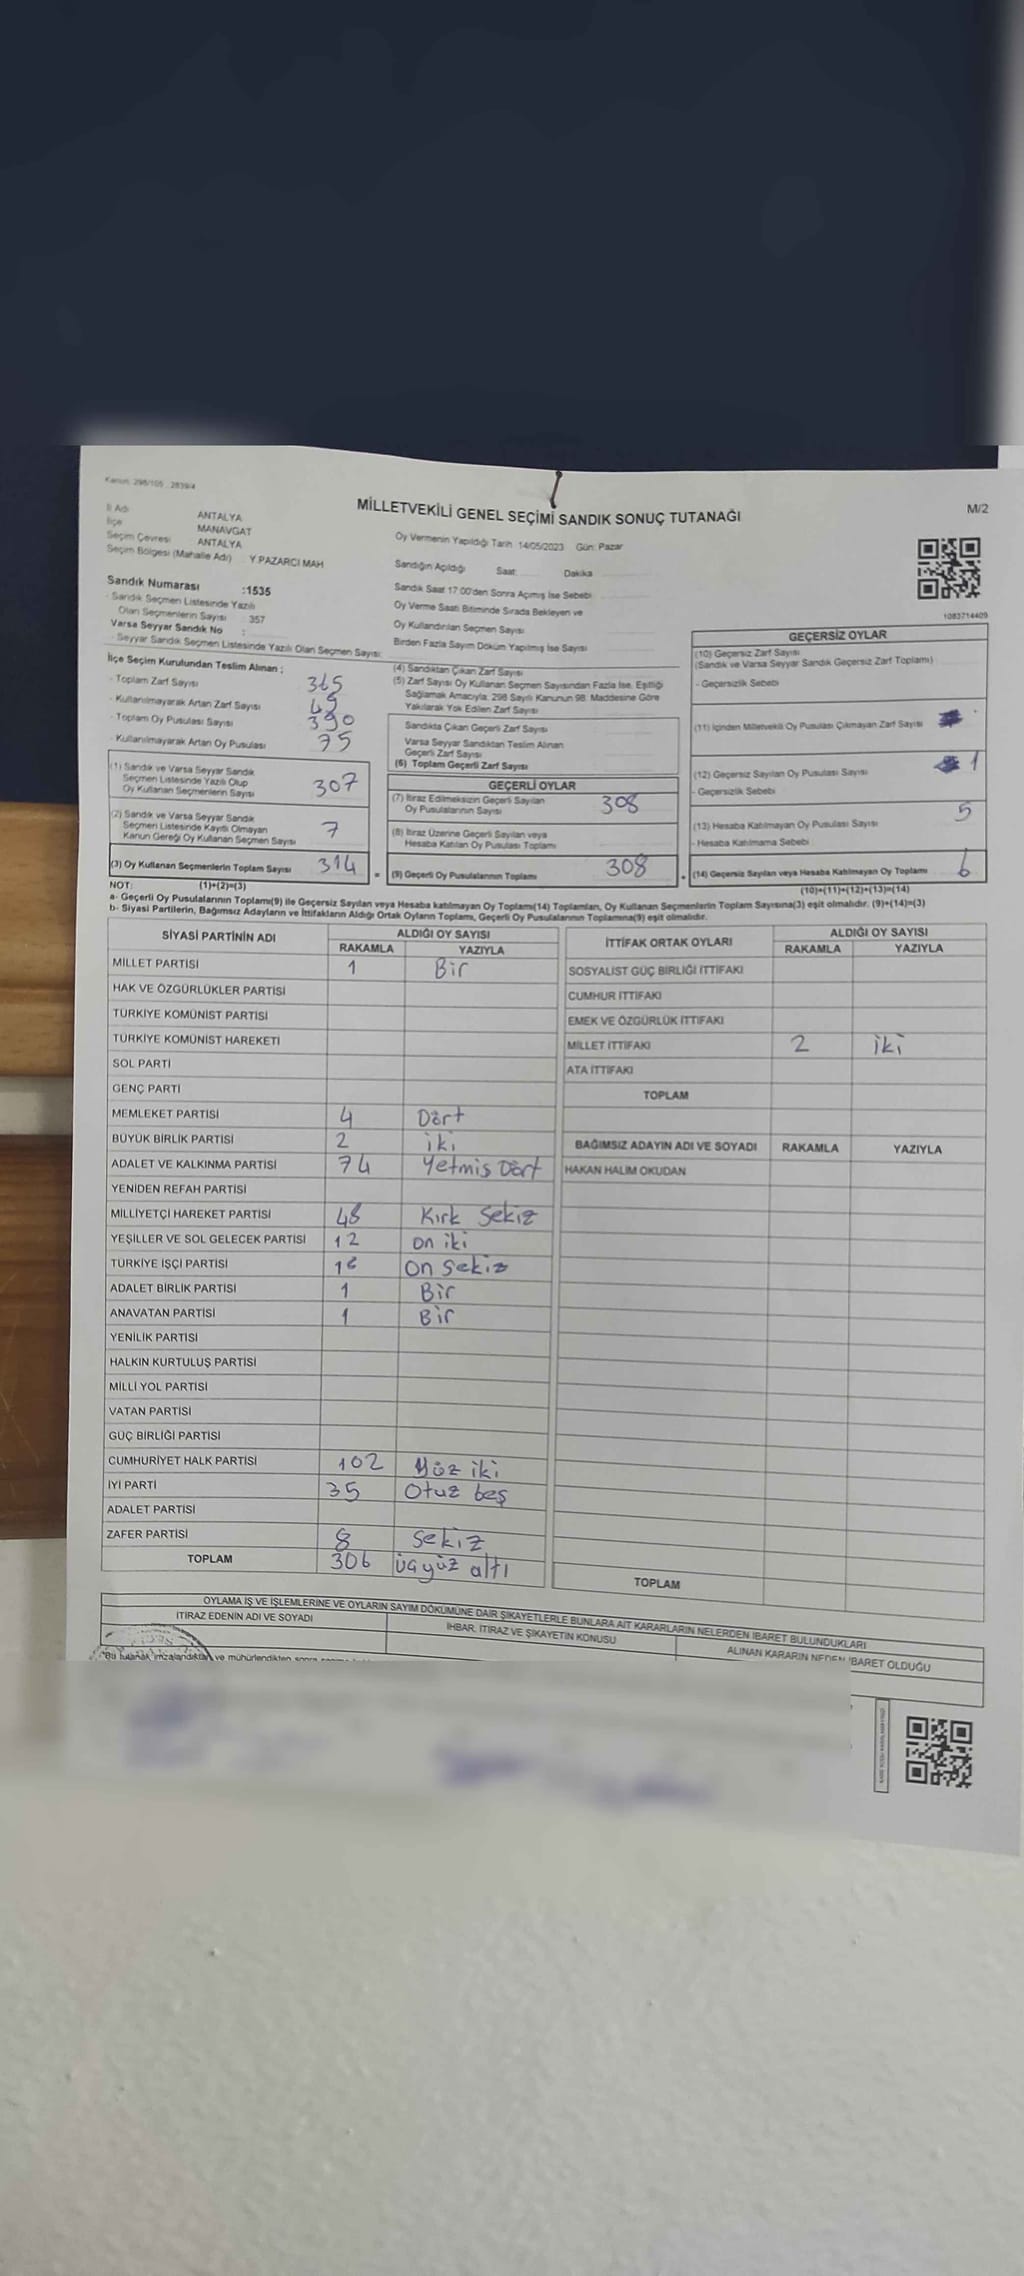 Kanun: 298/105 , 2839/4
MİLLETVEKİLİ GENEL SEÇİMİ SANDIK SONUÇ TUTANAĞI
M/2
İl Adı ANTALYA
İlçe MANAVGAT
Seçim Çevresi ANTALYA
Seçim Bölgesi (Mahalle Adı) Y.PAZARCI MAH
Sandık Numarası :1535
- Sandık Seçmen Listesinde Yazılı
Olan Seçmenlerin Sayısı : 357
Varsa Seyyar Sandık No :
- Seyyar Sandık Seçmen Listesinde Yazılı Olan Seçmen Sayısı:
Oy Vermenin Yapıldığı Tarih: 14/05/2023 Gün: Pazar
Sandığın Açıldığı Saat: Dakika
Sandık Saat 17:00'den Sonra Açımış İse Sebebi
Oy Verme Saati Bitiminde Sırada Bekleyen ve
Oy Kullandırılan Seçmen Sayısı
Birden Fazla Sayım Döküm Yapılmış İse Sayısı
1083714409
İlçe Seçim Kurulundan Teslim Alınan ;
- Toplam Zarf Sayısı 365
- Kullanılmayarak Artan Zarf Sayısı
- Toplam Oy Pusulası Sayısı 390
- Kullanılmayarak Artan Oy Pusulası 75
(1) Sandık ve Varsa Seyyar Sandık
Seçmen Listesinde Yazılı Olup
Oy Kullanan Seçmenlerin Sayısı 307
(2) Sandık ve Varsa Seyyar Sandık
Seçmen Listesinde Kayıtlı Olmayan
Kanun Gereği Oy Kullanan Seçmen Sayısı 7
(3) Oy Kullanan Seçmenlerin Toplam Sayısı 314 =
(4) Sandıktan Çıkan Zarf Sayısı
(5) Zarf Sayısı Oy Kullanan Seçmen Sayısından Fazla İse, Eşitliği
Sağlamak Amacıyla, 298 Sayılı Kanunun 98. Maddesine Göre
Yakılarak Yok Edilen Zarf Sayısı
Sandıkta Çıkan Geçerli Zarf Sayısı
Varsa Seyyar Sandıktan Teslim Alınan
Geçerli Zarf Sayısı
(6) Toplam Geçerli Zarf Sayısı
GEÇERLİ OYLAR
(7) İtiraz Edilmeksizin Geçerli Sayılan
Oy Pusulalarının Sayısı 308
(8) İtiraz Üzerine Geçerli Sayılan veya
Hesaba Katılan Oy Pusulası Toplamı
(9) Geçerli Oy Pusulalarının Toplamı 308 +
GEÇERSİZ OYLAR
(10) Geçersiz Zarf Sayısı
(Sandık ve Varsa Seyyar Sandık Geçersiz Zarf Toplamı)
- Geçersizlik Sebebi
(11) İçinden Milletvekili Oy Pusulası Çıkmayan Zarf Sayısı
(12) Geçersiz Sayılan Oy Pusulası Sayısı 1
- Geçersizlik Sebebi
(13) Hesaba Katılmayan Oy Pusulası Sayısı 5
- Hesaba Katılmama Sebebi
(14) Geçersiz Sayılan veya Hesaba Katılmayan Oy Toplamı 6
NOT: (1)+(2)=(3) (10)+(11)+(12)+(13)=(14)
a- Geçerli Oy Pusulalarının Toplamı(9) ile Geçersiz Sayılan veya Hesaba katılmayan Oy Toplamı(14) Toplamları, Oy Kullanan Seçmenlerin Toplam Sayısına(3) eşit olmalıdır. (9)+(14)=(3)
b- Siyasi Partilerin, Bağımsız Adayların ve İttifakların Aldığı Ortak Oyların Toplamı, Geçerli Oy Pusulalarının Toplamına(9) eşit olmalıdır.
SİYASİ PARTİNİN ADI ALDIĞI OY SAYISI
RAKAMLA YAZIYLA
MİLLET PARTİSİ 1 Bir
HAK VE ÖZGÜRLÜKLER PARTİSİ
TÜRKİYE KOMÜNİST PARTİSİ
TÜRKİYE KOMÜNİST HAREKETİ
SOL PARTİ
GENÇ PARTİ
MEMLEKET PARTİSİ 4 Dört
BÜYÜK BİRLİK PARTİSİ 2 iki
ADALET VE KALKINMA PARTİSİ 74 Yetmis Dört
YENİDEN REFAH PARTİSİ
MİLLİYETÇİ HAREKET PARTİSİ 48 Kırk Sekiz
YEŞİLLER VE SOL GELECEK PARTİSİ 12 on iki
TÜRKİYE İŞÇİ PARTİSİ 18 On Sekiz
ADALET BİRLİK PARTİSİ 1 Bir
ANAVATAN PARTİSİ 1 Bir
YENİLİK PARTİSİ
HALKIN KURTULUŞ PARTİSİ
MİLLİ YOL PARTİSİ
VATAN PARTİSİ
GÜÇ BİRLİĞİ PARTİSİ
CUMHURİYET HALK PARTİSİ 102 Yüz iki
İYİ PARTİ 35 Otuz beş
ADALET PARTİSİ
ZAFER PARTİSİ 8 Sekiz
TOPLAM 306 üçyüz altı
İTTİFAK ORTAK OYLARI ALDIĞI OY SAYISI
RAKAMLA YAZIYLA
SOSYALİST GÜÇ BİRLİĞİ İTTİFAKI
CUMHUR İTTİFAKI
EMEK VE ÖZGÜRLÜK İTTİFAKI
MİLLET İTTİFAKI 2 iki
ATA İTTİFAKI
TOPLAM
BAĞIMSIZ ADAYIN ADI VE SOYADI RAKAMLA YAZIYLA
HAKAN HALİM OKUDAN
TOPLAM
OYLAMA İŞ VE İŞLEMLERİNE VE OYLARIN SAYIM DÖKÜMÜNE DAİR ŞİKAYETLERLE BUNLARA AİT KARARLARIN NELERDEN İBARET BULUNDUKLARI
İTİRAZ EDENİN ADI VE SOYADI İHBAR, İTİRAZ VE ŞİKAYETİN KONUSU ALINAN KARARIN NEDEN İBARET OLDUĞU
"Bu tutanak imzalandıktan ve mühürlendikten sonra